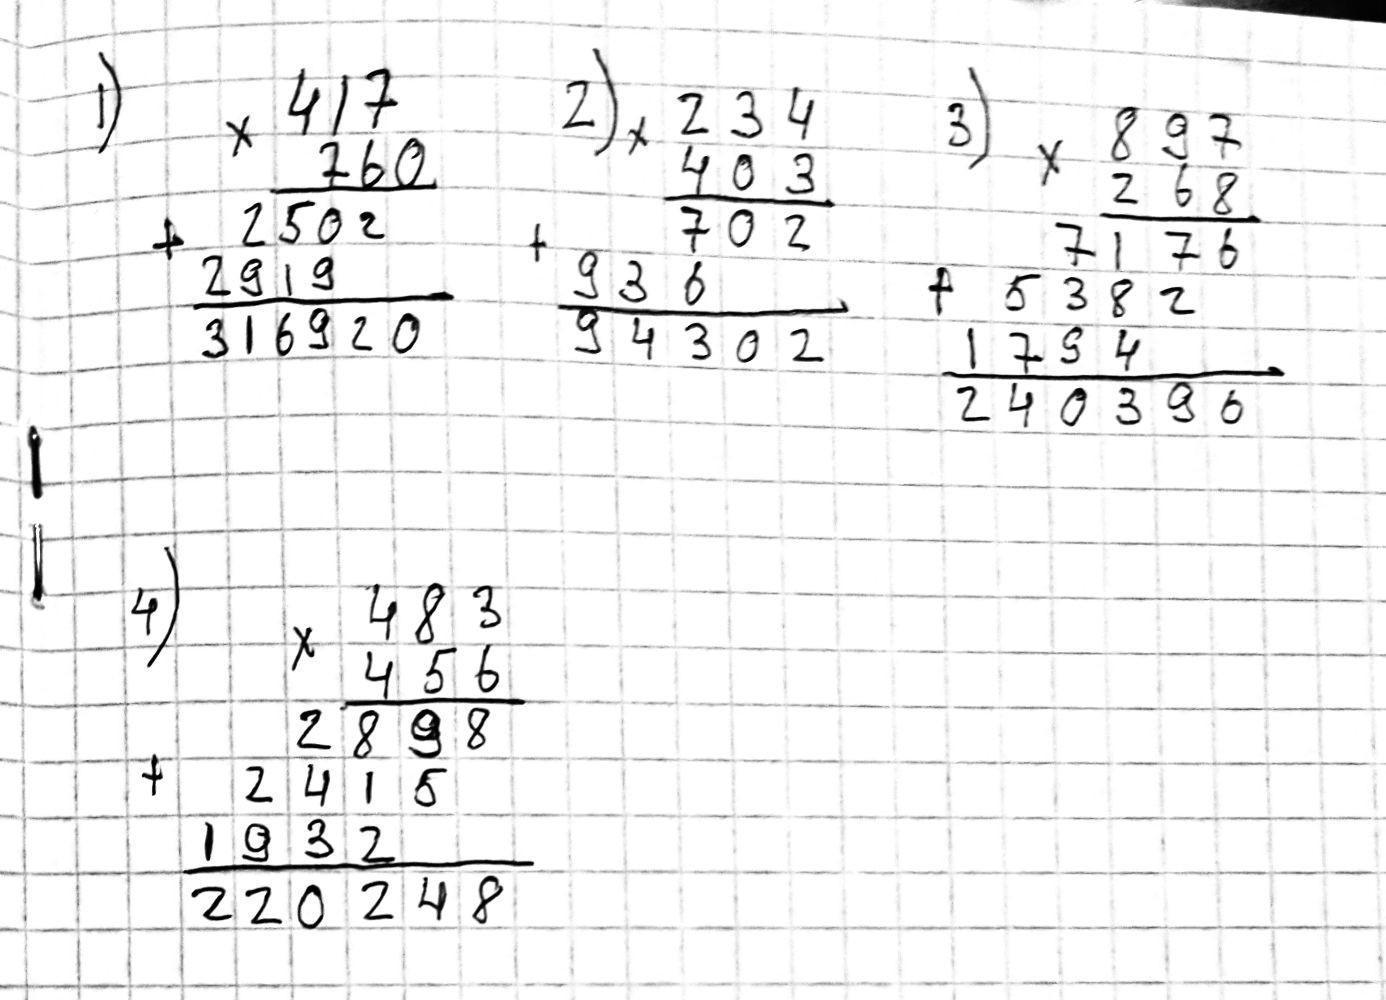 1) × 417
760
+ 2502
2919
316920
2) × 234
403
+ 702
936
94302
3) × 897
268
7176
+ 5382
1794
240396
4) × 483
456
2898
+ 2415
1932
220248